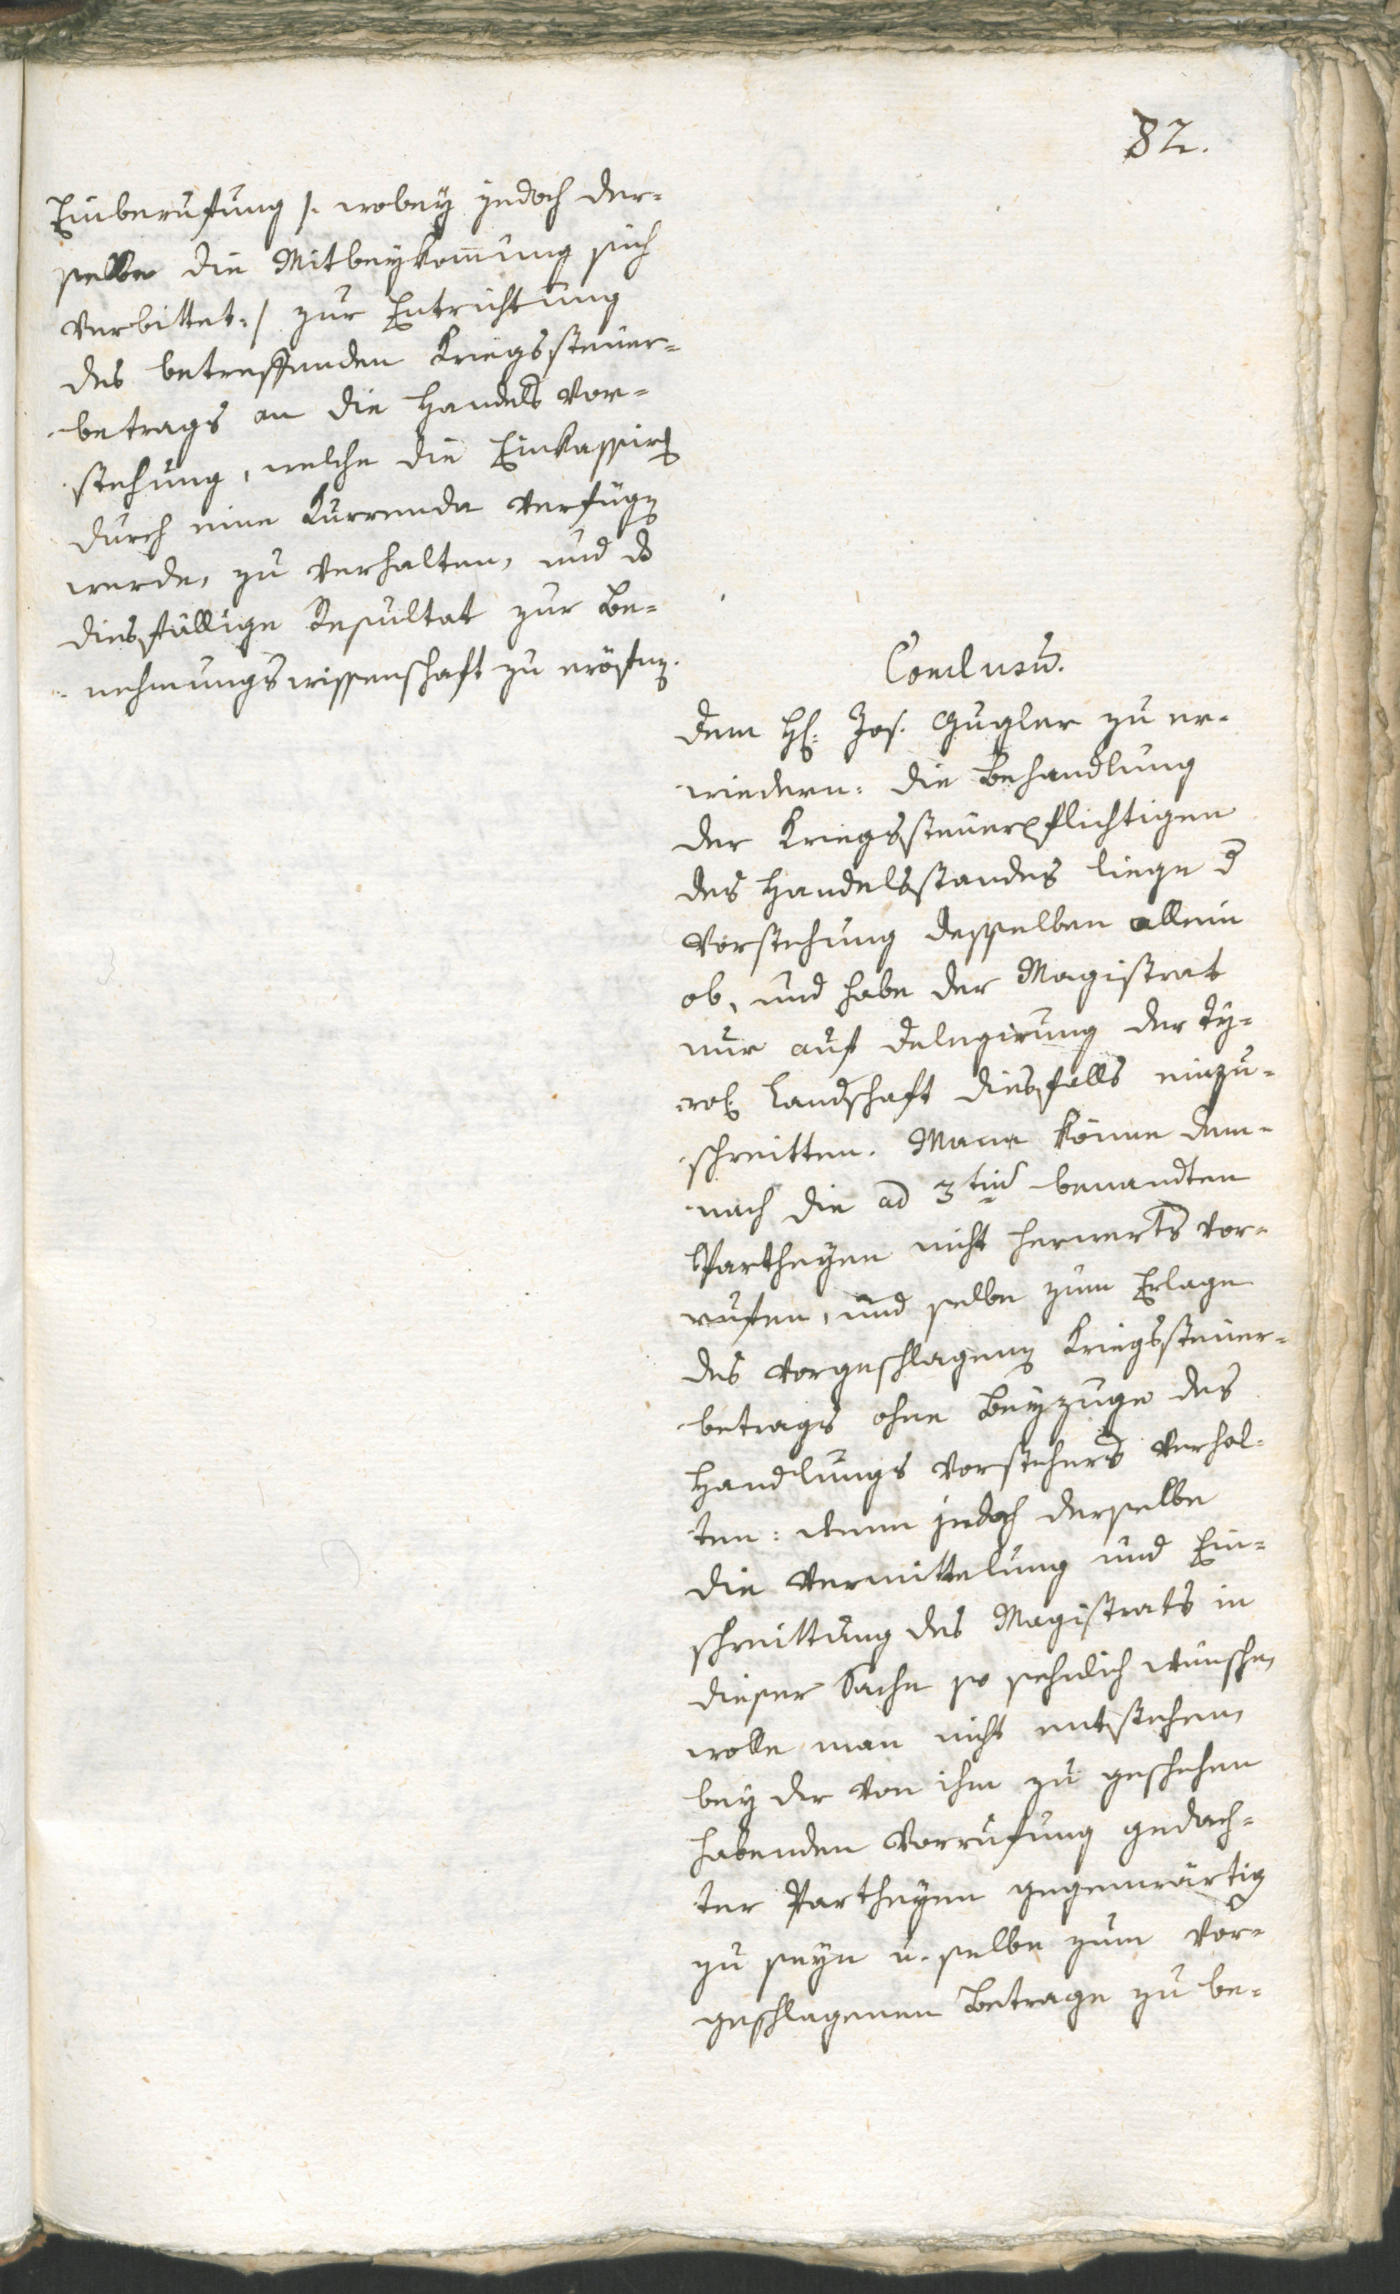 82.
Einberufung /: wobey jedoch der-
selbe die Mitbeykom̅ung sich
verbittet :/ zur Entrichtung
des betreffenden Kriegssteuer-
betrags an die Handels Vor-
stehung, welche die Einkassirg
durch eine Kurrenda verfügen
werde, zu verhalten, und das
diesfällige Resultat zur Be-
nehmungswissenschaft zu eröfnen.
Conclusũ.
Dem H: Jos. Gugler zu er-
wiedern: die Behandlung
der Kriegssteuerpflichtigen
des Handelsstandes liege der
Vorstehung desselben allein
ob, und habe der Magistrat
nur auf Delegirung der Ty-
rol: Landschaft diesfalls einzu-
schreitten. Mann könne dem-
nach die ad 3tiũ benandten
Partheyen nicht herwerts vor-
rufen, und selbe zum Erlage
des vorgeschlagenen Kriegssteuer-
betrags ohne Beyzuge des
Handlungs Vorstehers verhal-
ten: wenn jedoch derselbe
die Vermittelung und Ein-
schreittung des Magistrats in
dieser Sache so sehnlich wünsche,
wolle man nicht entstehen,
bey der von ihm zu geschehen
habenden Vorrufung gedach-
ter Partheyen gegenwärtig
zu seyn u. selbe zum vor-
geschlagenen Betrage zu be-